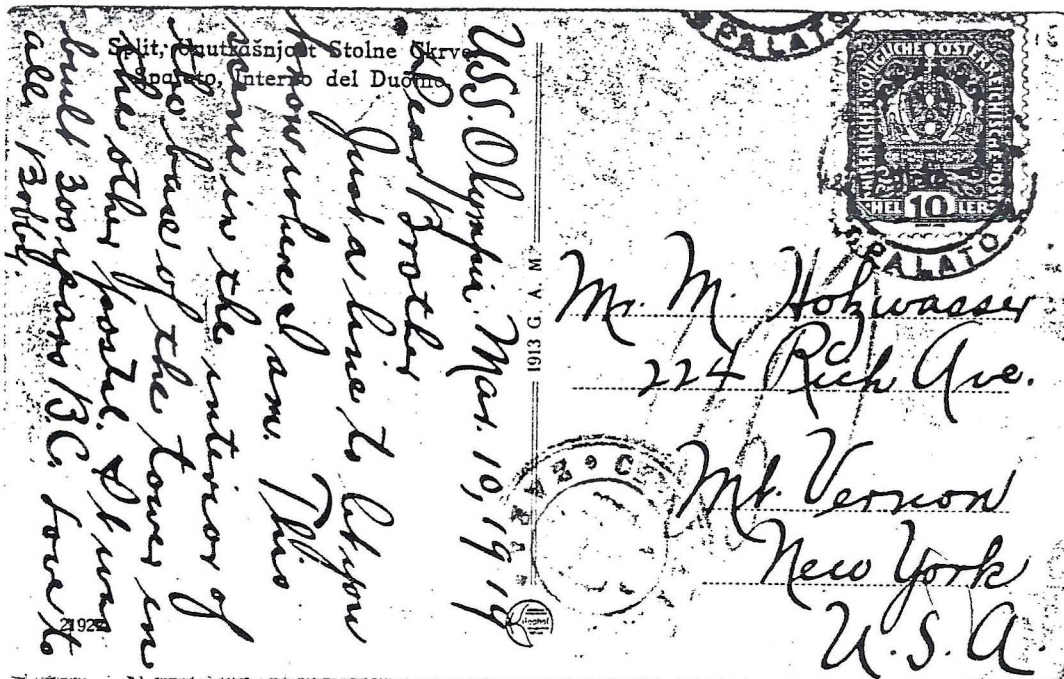 Split, Unutrašnjost Stolne Crkve
Spalato, Interno del Duomo
U.S.S. Olympia. Mar. 10, 1919
Dear Brother
Just a line to let you
know where I am. This
scene in the interior of
the base of the tower in
the other postal. It was
built 300 years B.C. Love to
all. Bobby.
1913 G. A. M.
21927
SPALATO
KAISERLICHE KÖNIGLICHE ÖSTERREICHISCHE POST
HELLER 10
SPALATO
Mr. M. Holzwasser
224 Rich Ave.
Mt. Vernon
New York
U.S.A.